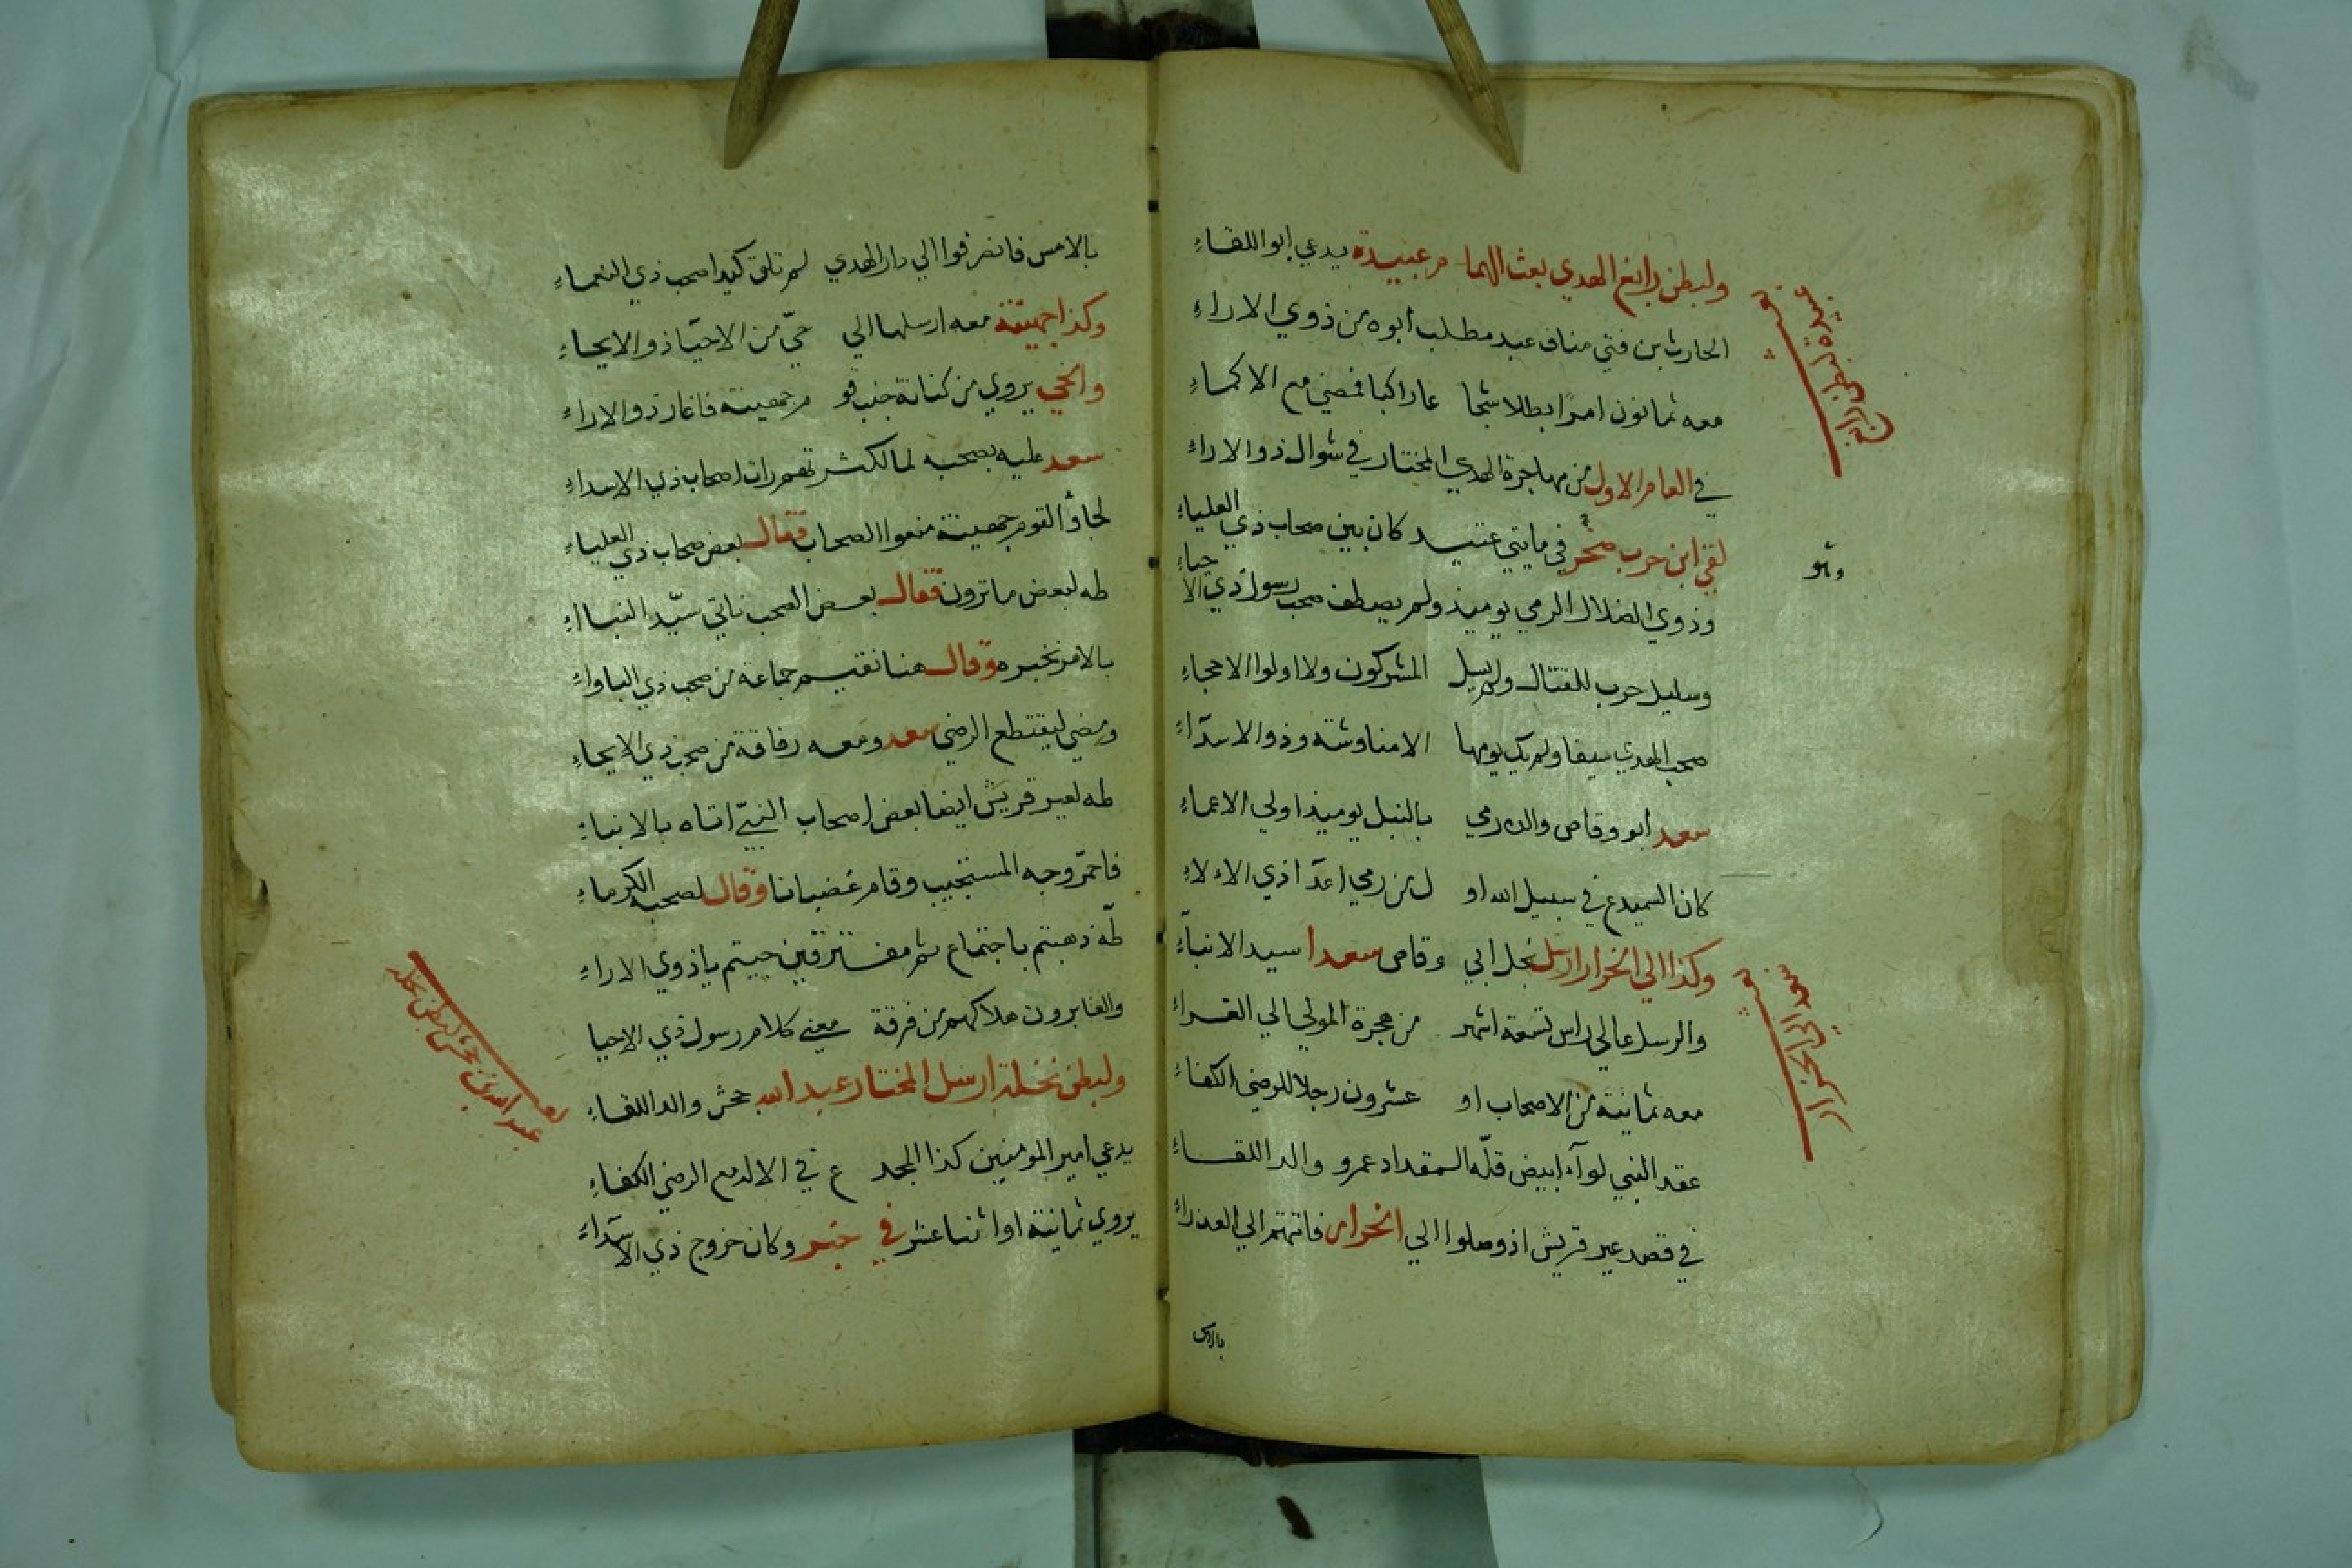 ولبطن رابغ الهدي بعث الهما م عبيدة يدعي ابو اللقاءِ
الحارث بن فتي مناف عبد مطلب ابوه من ذوي الاراءِ
معه ثمانون امرًا بطلا شجا عا راكبا فمضي مع الاكماءِ
في العام الاول من مهاجرة الهدي المختار في شوال ذو الاراءِ
لقي ابن حرب صخر في مايتي عنيد كان بين صحاب ذي العلياءِ
وذوي الضلال الرمي يوميذ ولم يصطف صحب رسول ذي الاحياءِ
وسليل حرب للقتال ولم يسل المشركون ولا اولوا الاحجاءِ
صحب الهدي سيفا ولم يك يومها الا مناوشة وذو الاسدآءِ
سعد ابو وقاص والده رمي بالنبل يوميذ اولي الاعماءِ
كان السميدع في سبيل الله او ل من رمي اعدآ ذي الاءلاءِ
وكذا الي الخرار ارسل نجل ابي وقاص سعدا سيد الانبآءِ
والرسل عالي راس تسعة اشهر من هجرة المولي الي القراءِ
معه ثمانية من الاصحاب او عشرون رجلا للرضي الكفاءِ
عقد النبي لوآء ابيض قلّه المقداد عمرو والد اللقاءِ
في قصد عير قريش اذ وصلوا الي الخرار فاتتهم الي العذراءِ
بالامس
عبيدة لبطن رابغ
سعد الي الخرار
بالامس فانصرفوا الي دار الهدي لم تلق كيدا صحب ذي النعماءِ
وكذا جهينة معه ارسلها الي حيّ من الاحيآ ذو الايحاءِ
والحي يروي من كنانة جنب قو م جهينة فاغار ذو الاراءِ
سعد عليه بصحبه لما لكثرتهم رات اصحاب ذي الاسداءِ
لجاؤ القوم جهينة منعوا الصحاب فقال بعض صحاب ذي العلياءِ
طه لبعض ما ترون فقال بعض الصحب ناتي سيّد النباءِ
بالامر نخبره وقال هنا نقيم جماعة من صحب ذي الباواءِ
ومضي ليقتطع الرضي سعد ومعه رفاقة من صحب ذي الايحاءِ
طه لعير قريش ايضا بعض اصحاب النبيّ اتاه بالانباءِ
فاحمرّ وجه المستجيب وقام غضبانا وقال لصحبه الكرماءِ
طه ذهبتم باجتماع ثم مفترقين جيتم يا ذوي الاراءِ
والغابرون هلاكهم من فرقة معني كلام رسول ذي الاحيا
ولبطن نخلة ارسل المختار عبد الله جحش والد اللقاءِ
يدعي امير المومنين كذا المجد ع في الاله مع الرضي الكفاءِ
يروي ثمانية او اثنا عشر في خبر وكان خروج ذي الاسدآءِ
عبد الله بن جحش لبطن نخلة